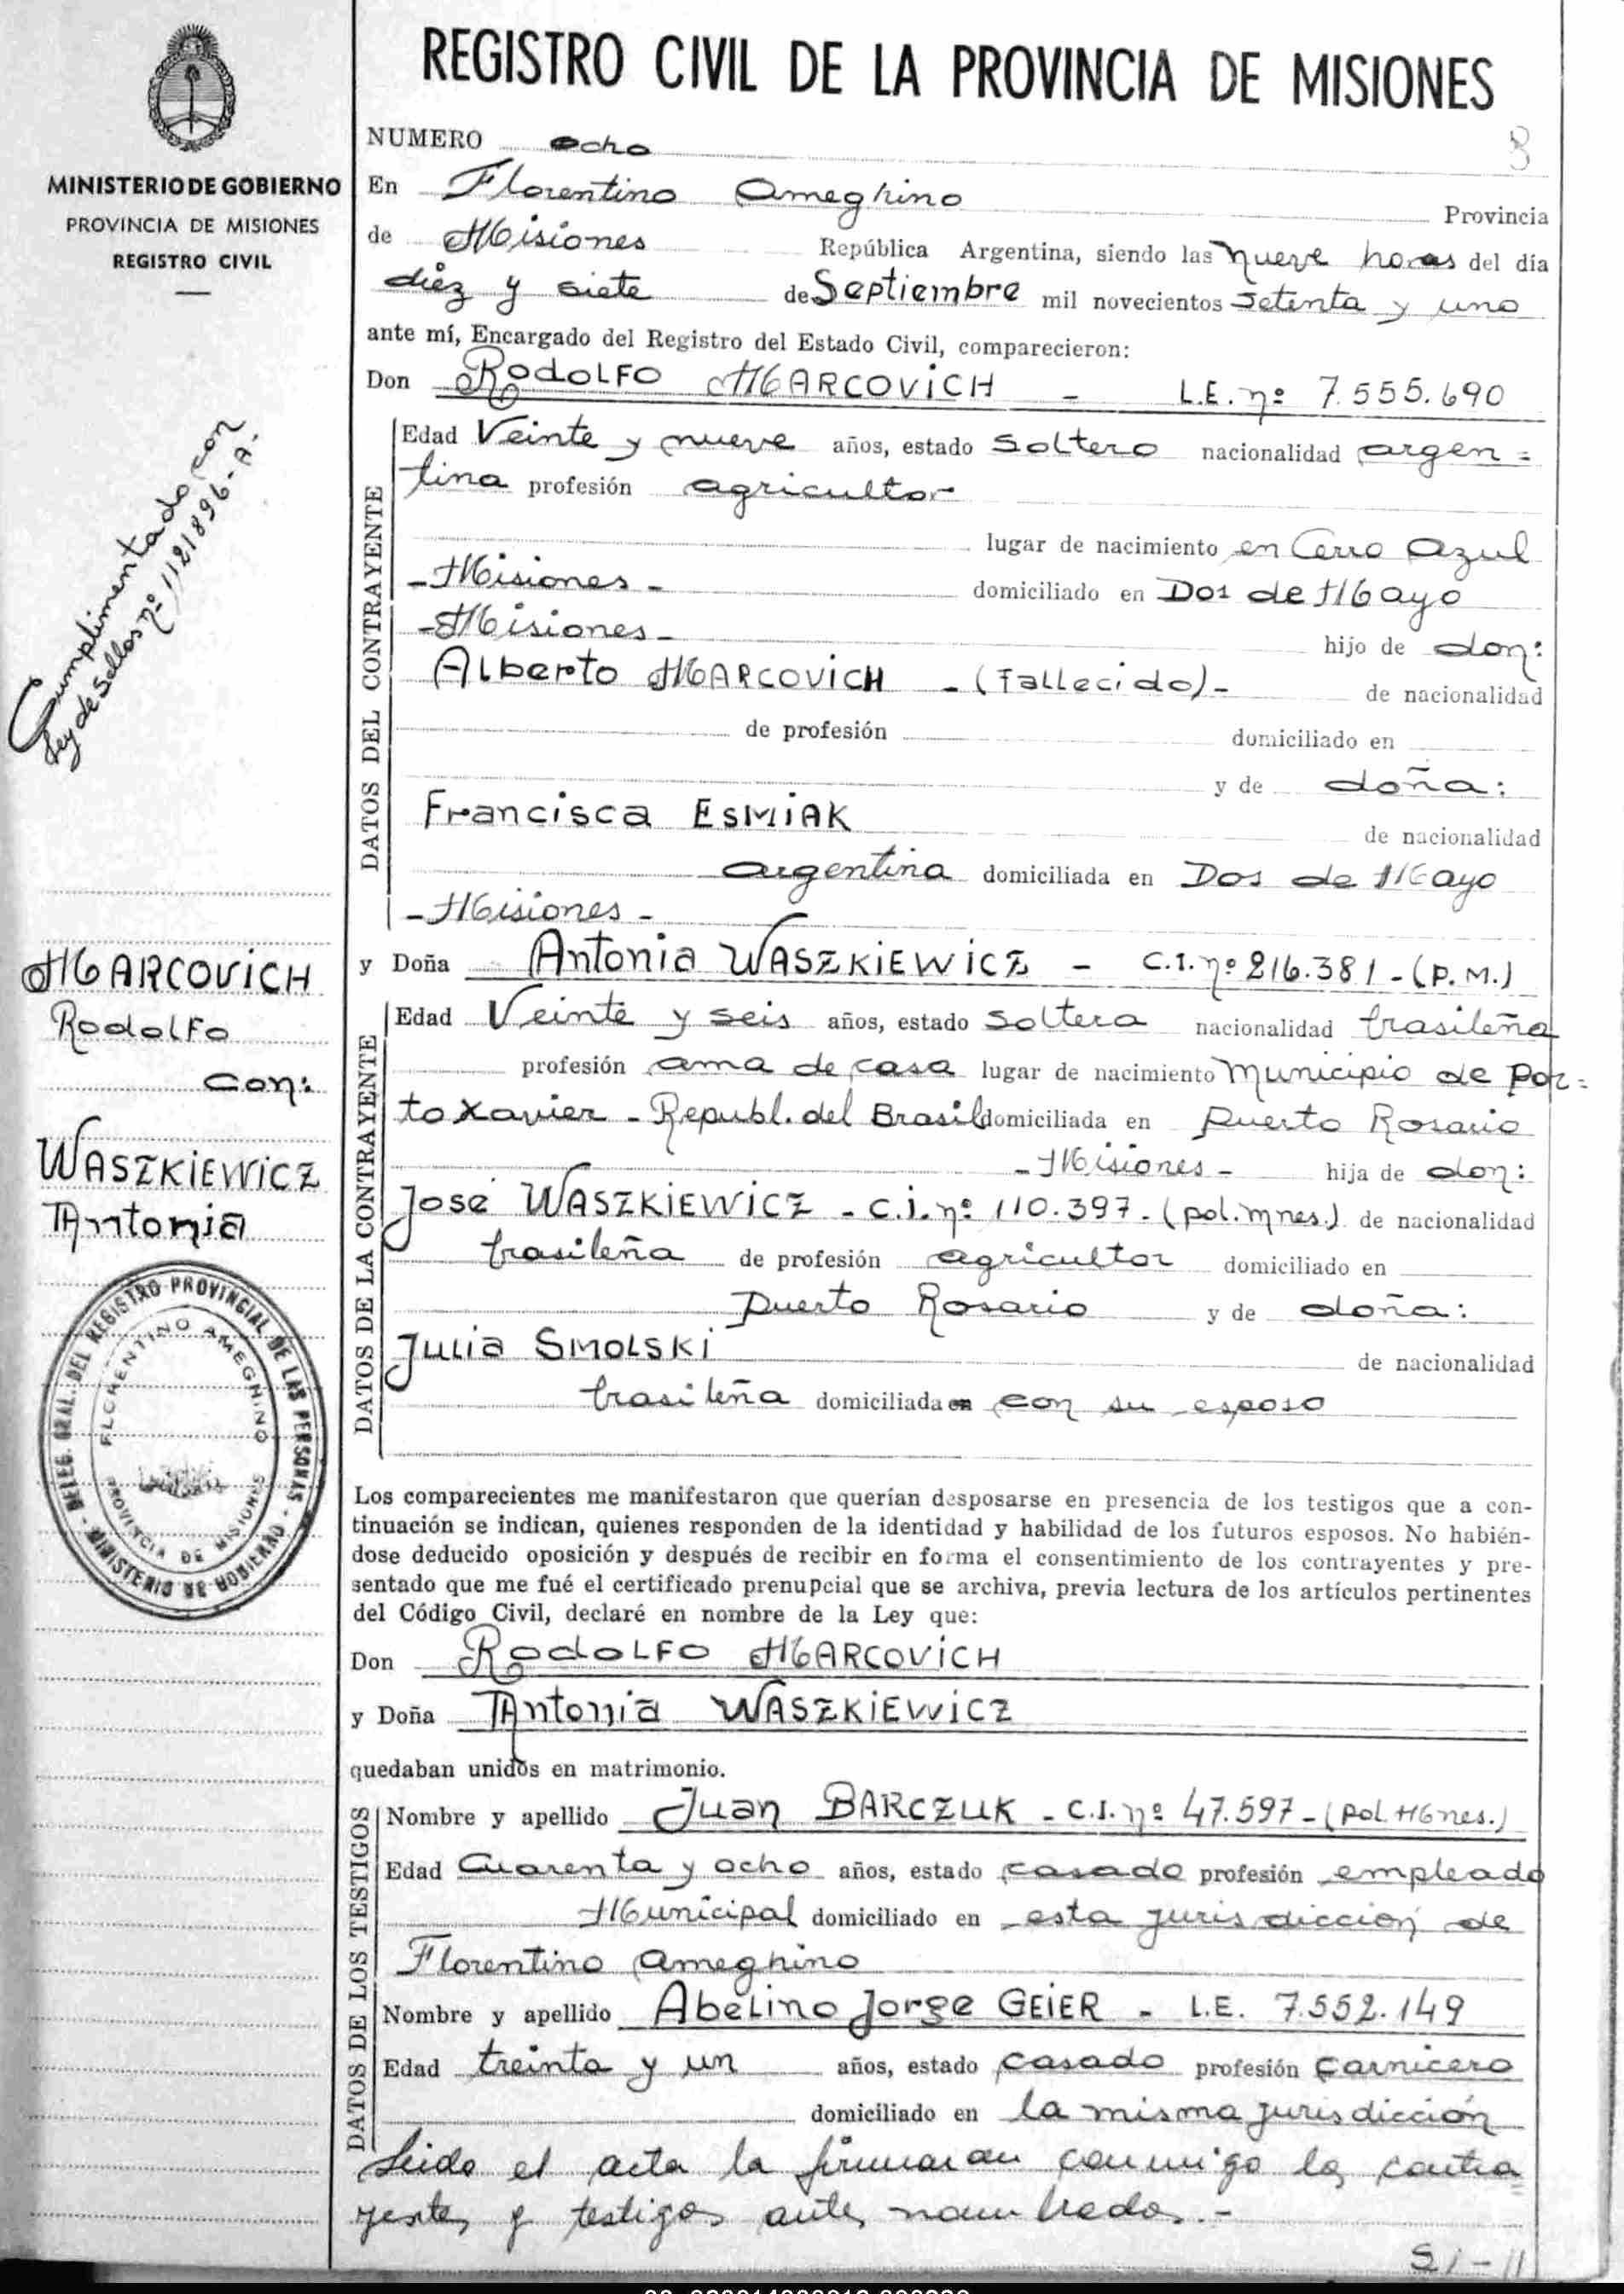 REGISTRO CIVIL DE LA PROVINCIA DE MISIONES
MINISTERIO DE GOBIERNO
PROVINCIA DE MISIONES
REGISTRO CIVIL
Cumplimentado con
ley de Sellos nº 1121896-A.-
MARCOVICH
Rodolfo
Con:
WASZKIEWICZ
Antonia
DELEG. GRAL. DEL REGISTRO PROVINCIAL DE LAS PERSONAS - MINISTERIO DE GOBIERNO -
FLORENTINO AMEGHINO
PROVINCIA DE MISIONES
NUMERO ocho
8
En Florentino Ameghino Provincia
de Misiones República Argentina, siendo las nueve horas del día
diez y siete de Septiembre mil novecientos setenta y uno
ante mí, Encargado del Registro del Estado Civil, comparecieron:
Don Rodolfo MARCOVICH - L.E. nº 7.555.690
DATOS DEL CONTRAYENTE
Edad Veinte y nueve años, estado soltero nacionalidad argen=
tina profesión agricultor
lugar de nacimiento en Cerro Azul
-Misiones- domiciliado en Dos de Mayo
-Misiones- hijo de don:
Alberto MARCOVICH -(Fallecido)- de nacionalidad
de profesión domiciliado en
y de doña:
Francisca ESMIAK de nacionalidad
argentina domiciliada en Dos de Mayo
-Misiones-
y Doña Antonia WASZKIEWICZ - C.I. nº 216.381-(P.M.)
DATOS DE LA CONTRAYENTE
Edad Veinte y seis años, estado soltera nacionalidad brasileña
profesión ama de casa lugar de nacimiento Municipio de Por=
to Xavier - Republ. del Brasil domiciliada en Puerto Rosario
-Misiones- hija de don:
José WASZKIEWICZ - C.I. nº 110.397-(pol. mnes.) de nacionalidad
brasileña de profesión agricultor domiciliado en
Puerto Rosario y de doña:
Julia SMOLSKI de nacionalidad
brasileña domiciliada en con su esposo
Los comparecientes me manifestaron que querían desposarse en presencia de los testigos que a con-
tinuación se indican, quienes responden de la identidad y habilidad de los futuros esposos. No habién-
dose deducido oposición y después de recibir en forma el consentimiento de los contrayentes y pre-
sentado que me fué el certificado prenupcial que se archiva, previa lectura de los artículos pertinentes
del Código Civil, declaré en nombre de la Ley que:
Don Rodolfo MARCOVICH
y Doña Antonia WASZKIEWICZ
quedaban unidos en matrimonio.
DATOS DE LOS TESTIGOS
Nombre y apellido Juan BARCZUK - C.I. nº 47.597-(pol. Mnes.)
Edad Cuarenta y ocho años, estado casado profesión empleado
Municipal domiciliado en esta jurisdicción de
Florentino Ameghino
Nombre y apellido Abelino Jorge GEIER - L.E. 7.552.149
Edad treinta y un años, estado casado profesión carnicero
domiciliado en la misma jurisdicción
Leida el acta la firmaran conmigo los contra
yentes y testigos antes nombrados.-